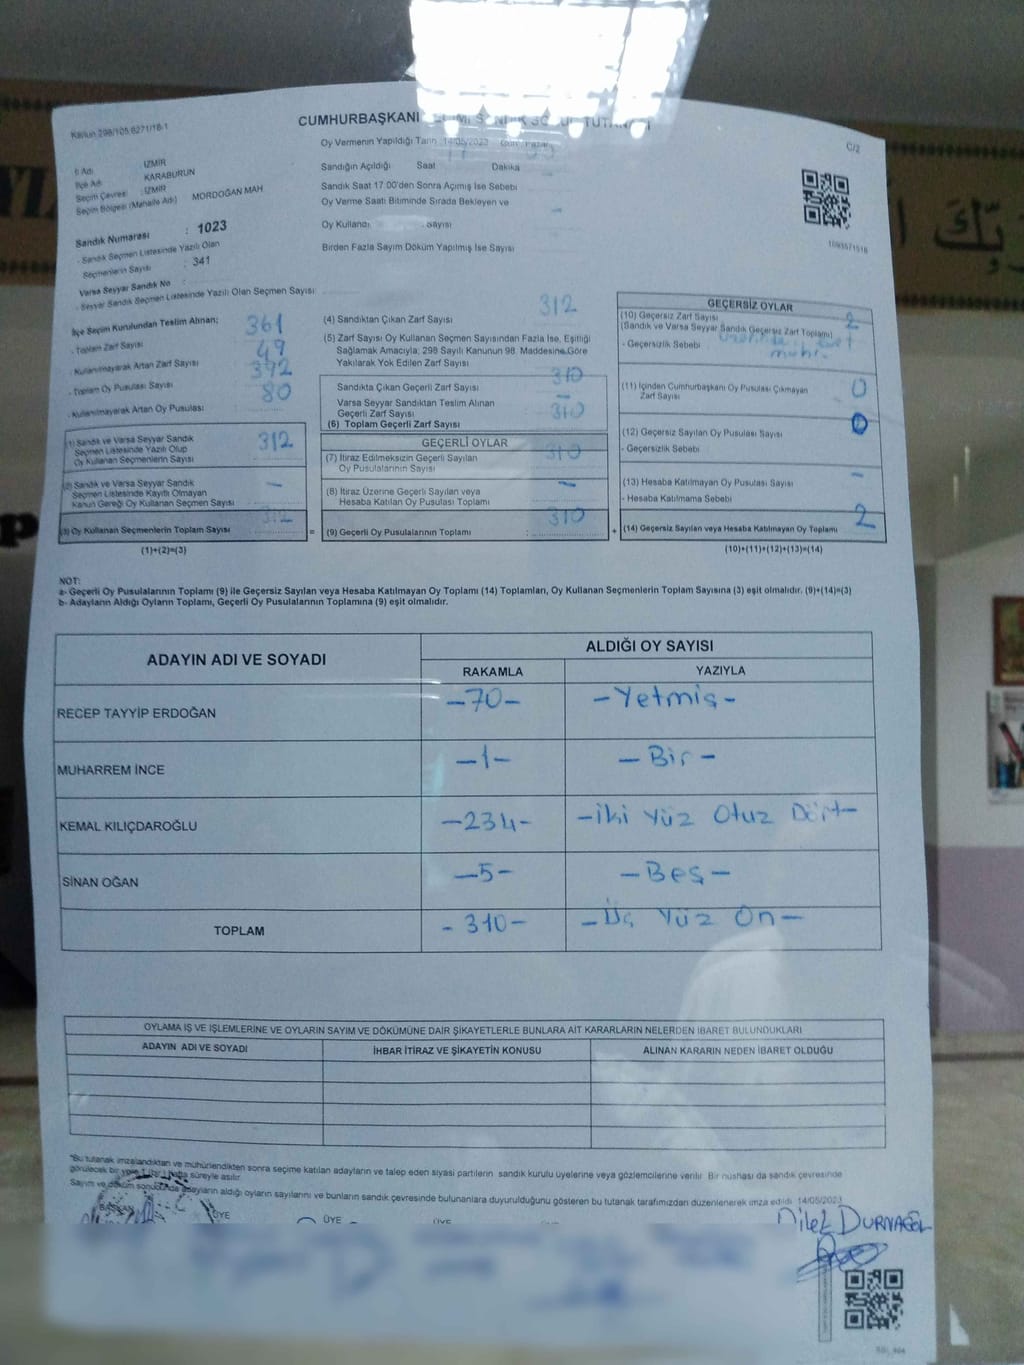 Kanun 298/105,6271/18-1
CUMHURBAŞKANI SEÇİMİ SANDIK SONUÇ TUTANAĞI
C/2
Oy Vermenin Yapıldığı Tarih : 14/05/2023 Günü: Pazar
İl Adı : İZMİR
İlçe Adı : KARABURUN
Seçim Çevresi : İZMİR
Seçim Bölgesi (Mahalle Adı) : MORDOĞAN MAH
Sandığın Açıldığı Saat Dakika
Sandık Saat 17.00'den Sonra Açımış İse Sebebi
Oy Verme Saati Bitiminde Sırada Bekleyen ve
Oy Kullanan Sayısı
Birden Fazla Sayım Döküm Yapılmış İse Sayısı
Sandık Numarası : 1023
- Sandık Seçmen Listesinde Yazılı Olan
Seçmenlerin Sayısı : 341
Varsa Seyyar Sandık No :
- Seyyar Sandık Seçmen Listesinde Yazılı Olan Seçmen Sayısı:
İlçe Seçim Kurulundan Teslim Alınan;
- Toplam Zarf Sayısı 361
- Kullanılmayarak Artan Zarf Sayısı 49
- Toplam Oy Pusulası Sayısı 392
- Kullanılmayarak Artan Oy Pusulası 80
(1) Sandık ve Varsa Seyyar Sandık
Seçmen Listesinde Yazılı Olup
Oy Kullanan Seçmenlerin Sayısı 312
(2) Sandık ve Varsa Seyyar Sandık
Seçmen Listesinde Kayıtlı Olmayan
Kanun Gereği Oy Kullanan Seçmen Sayısı -
(3) Oy Kullanan Seçmenlerin Toplam Sayısı 312 =
(1)+(2)=(3)
(4) Sandıktan Çıkan Zarf Sayısı 312
(5) Zarf Sayısı Oy Kullanan Seçmen Sayısından Fazla İse, Eşitliği
Sağlamak Amacıyla; 298 Sayılı Kanunun 98. Maddesine Göre
Yakılarak Yok Edilen Zarf Sayısı
Sandıkta Çıkan Geçerli Zarf Sayısı 310
Varsa Seyyar Sandıktan Teslim Alınan
Geçerli Zarf Sayısı -
(6) Toplam Geçerli Zarf Sayısı 310
GEÇERLİ OYLAR
(7) İtiraz Edilmeksizin Geçerli Sayılan
Oy Pusulalarının Sayısı 310
(8) İtiraz Üzerine Geçerli Sayılan veya
Hesaba Katılan Oy Pusulası Toplamı -
(9) Geçerli Oy Pusulalarının Toplamı : 310 +
GEÇERSİZ OYLAR
(10) Geçersiz Zarf Sayısı 2
(Sandık ve Varsa Seyyar Sandık Geçersiz Zarf Toplamı)
- Geçersizlik Sebebi
(11) İçinden Cumhurbaşkanı Oy Pusulası Çıkmayan
Zarf Sayısı 0
(12) Geçersiz Sayılan Oy Pusulası Sayısı 0
- Geçersizlik Sebebi
(13) Hesaba Katılmayan Oy Pusulası Sayısı -
- Hesaba Katılmama Sebebi
(14) Geçersiz Sayılan veya Hesaba Katılmayan Oy Toplamı 2
(10)+(11)+(12)+(13)=(14)
NOT:
a- Geçerli Oy Pusulalarının Toplamı (9) ile Geçersiz Sayılan veya Hesaba Katılmayan Oy Toplamı (14) Toplamları, Oy Kullanan Seçmenlerin Toplam Sayısına (3) eşit olmalıdır. (9)+(14)=(3)
b- Adayların Aldığı Oyların Toplamı, Geçerli Oy Pusulalarının Toplamına (9) eşit olmalıdır.
ADAYIN ADI VE SOYADI
ALDIĞI OY SAYISI
RAKAMLA YAZIYLA
RECEP TAYYİP ERDOĞAN -70- -Yetmiş-
MUHARREM İNCE -1- -Bir-
KEMAL KILIÇDAROĞLU -234- -İki Yüz Otuz Dört-
SİNAN OĞAN -5- -Beş-
TOPLAM -310- -Üç Yüz On-
OYLAMA İŞ VE İŞLEMLERİNE VE OYLARIN SAYIM VE DÖKÜMÜNE DAİR ŞİKAYETLERLE BUNLARA AİT KARARLARIN NELERDEN İBARET BULUNDUKLARI
ADAYIN ADI VE SOYADI İHBAR İTİRAZ VE ŞİKAYETİN KONUSU ALINAN KARARIN NEDEN İBARET OLDUĞU
*Bu tutanak imzalandıktan ve mühürlendikten sonra seçime katılan adayların ve talep eden siyasi partilerin sandık kurulu üyelerine veya gözlemcilerine verilir. Bir nushası da sandık çevresinde
görülecek bir yere 1 (bir) hafta süreyle asılır.
Sayım ve döküm sonucunda adayların aldığı oyların sayılarını ve bunların sandık çevresinde bulunanlara duyurulduğunu gösteren bu tutanak tarafımızdan düzenlenerek imza edildi. 14/05/2023
BAŞKAN ÜYE ÜYE ÜYE
Dilek DURNAGÖL